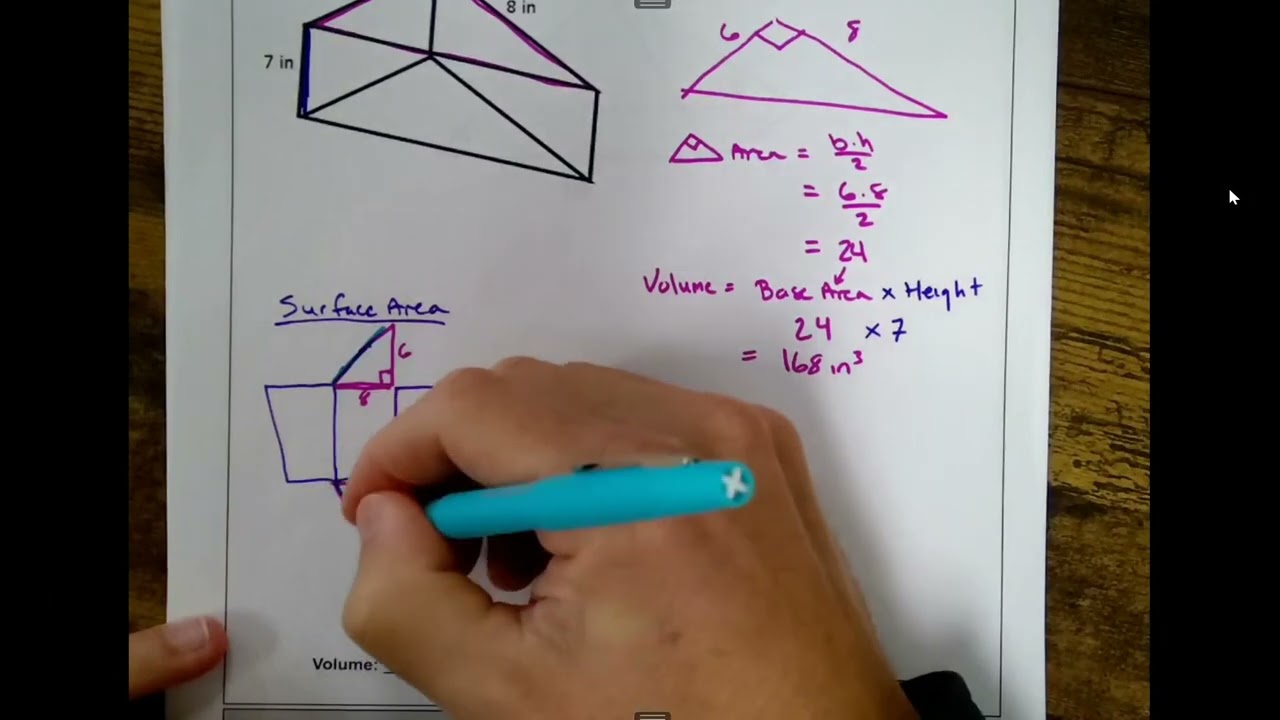 8 in
7 in
6 8
Area = b·h
2
= 6·8
2
= 24
Volume = Base Area × Height
24 × 7
= 168 in³
Surface Area
6
8
Volume: